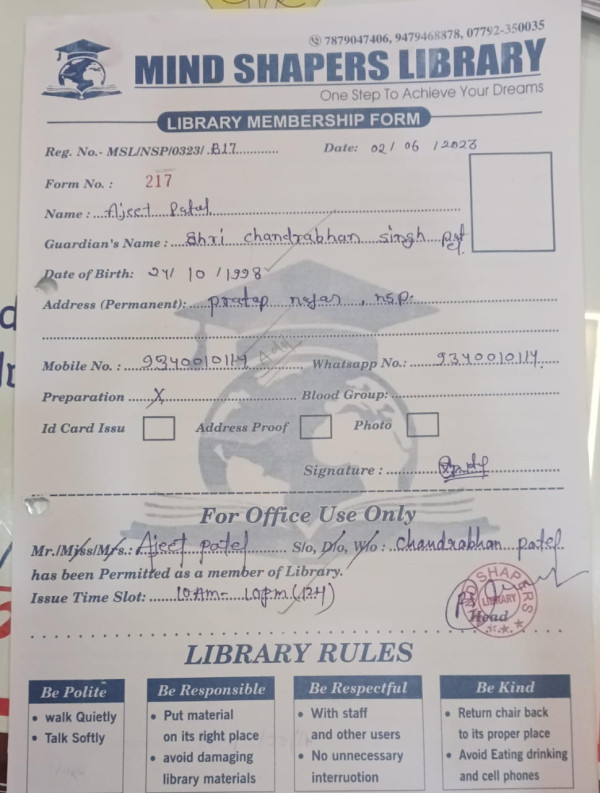 7879047406, 9479468878, 07792-350035
MIND SHAPERS LIBRARY
One Step To Achieve Your Dreams
LIBRARY MEMBERSHIP FORM
Reg. No.- MSL/NSP/0323/.B17............ Date: 02/06/2023
Form No. : 217
Name : Ajeet Patel
Guardian's Name : Shri chandrabhan singh
Date of Birth: 24/10/1998
Address (Permanent): pratap nagar, nsp.
Mobile No. : 9340010114 Whatsapp No.: 9340010114
Preparation X Blood Group:
Id Card Issu Address Proof Photo
Signature :
For Office Use Only
Mr./Miss/Mrs.: Ajeet patel S/o, D/o, W/o : chandrabhan patel
has been Permitted as a member of Library.
Issue Time Slot: 10Am- 10pm (12H)
SHAPERS
LIBRARY
Head
LIBRARY RULES
Be Polite
• walk Quietly
• Talk Softly
Be Responsible
• Put material
on its right place
• avoid damaging
library materials
Be Respectful
• With staff
and other users
• No unnecessary
interruotion
Be Kind
• Return chair back
to its proper place
• Avoid Eating drinking
and cell phones